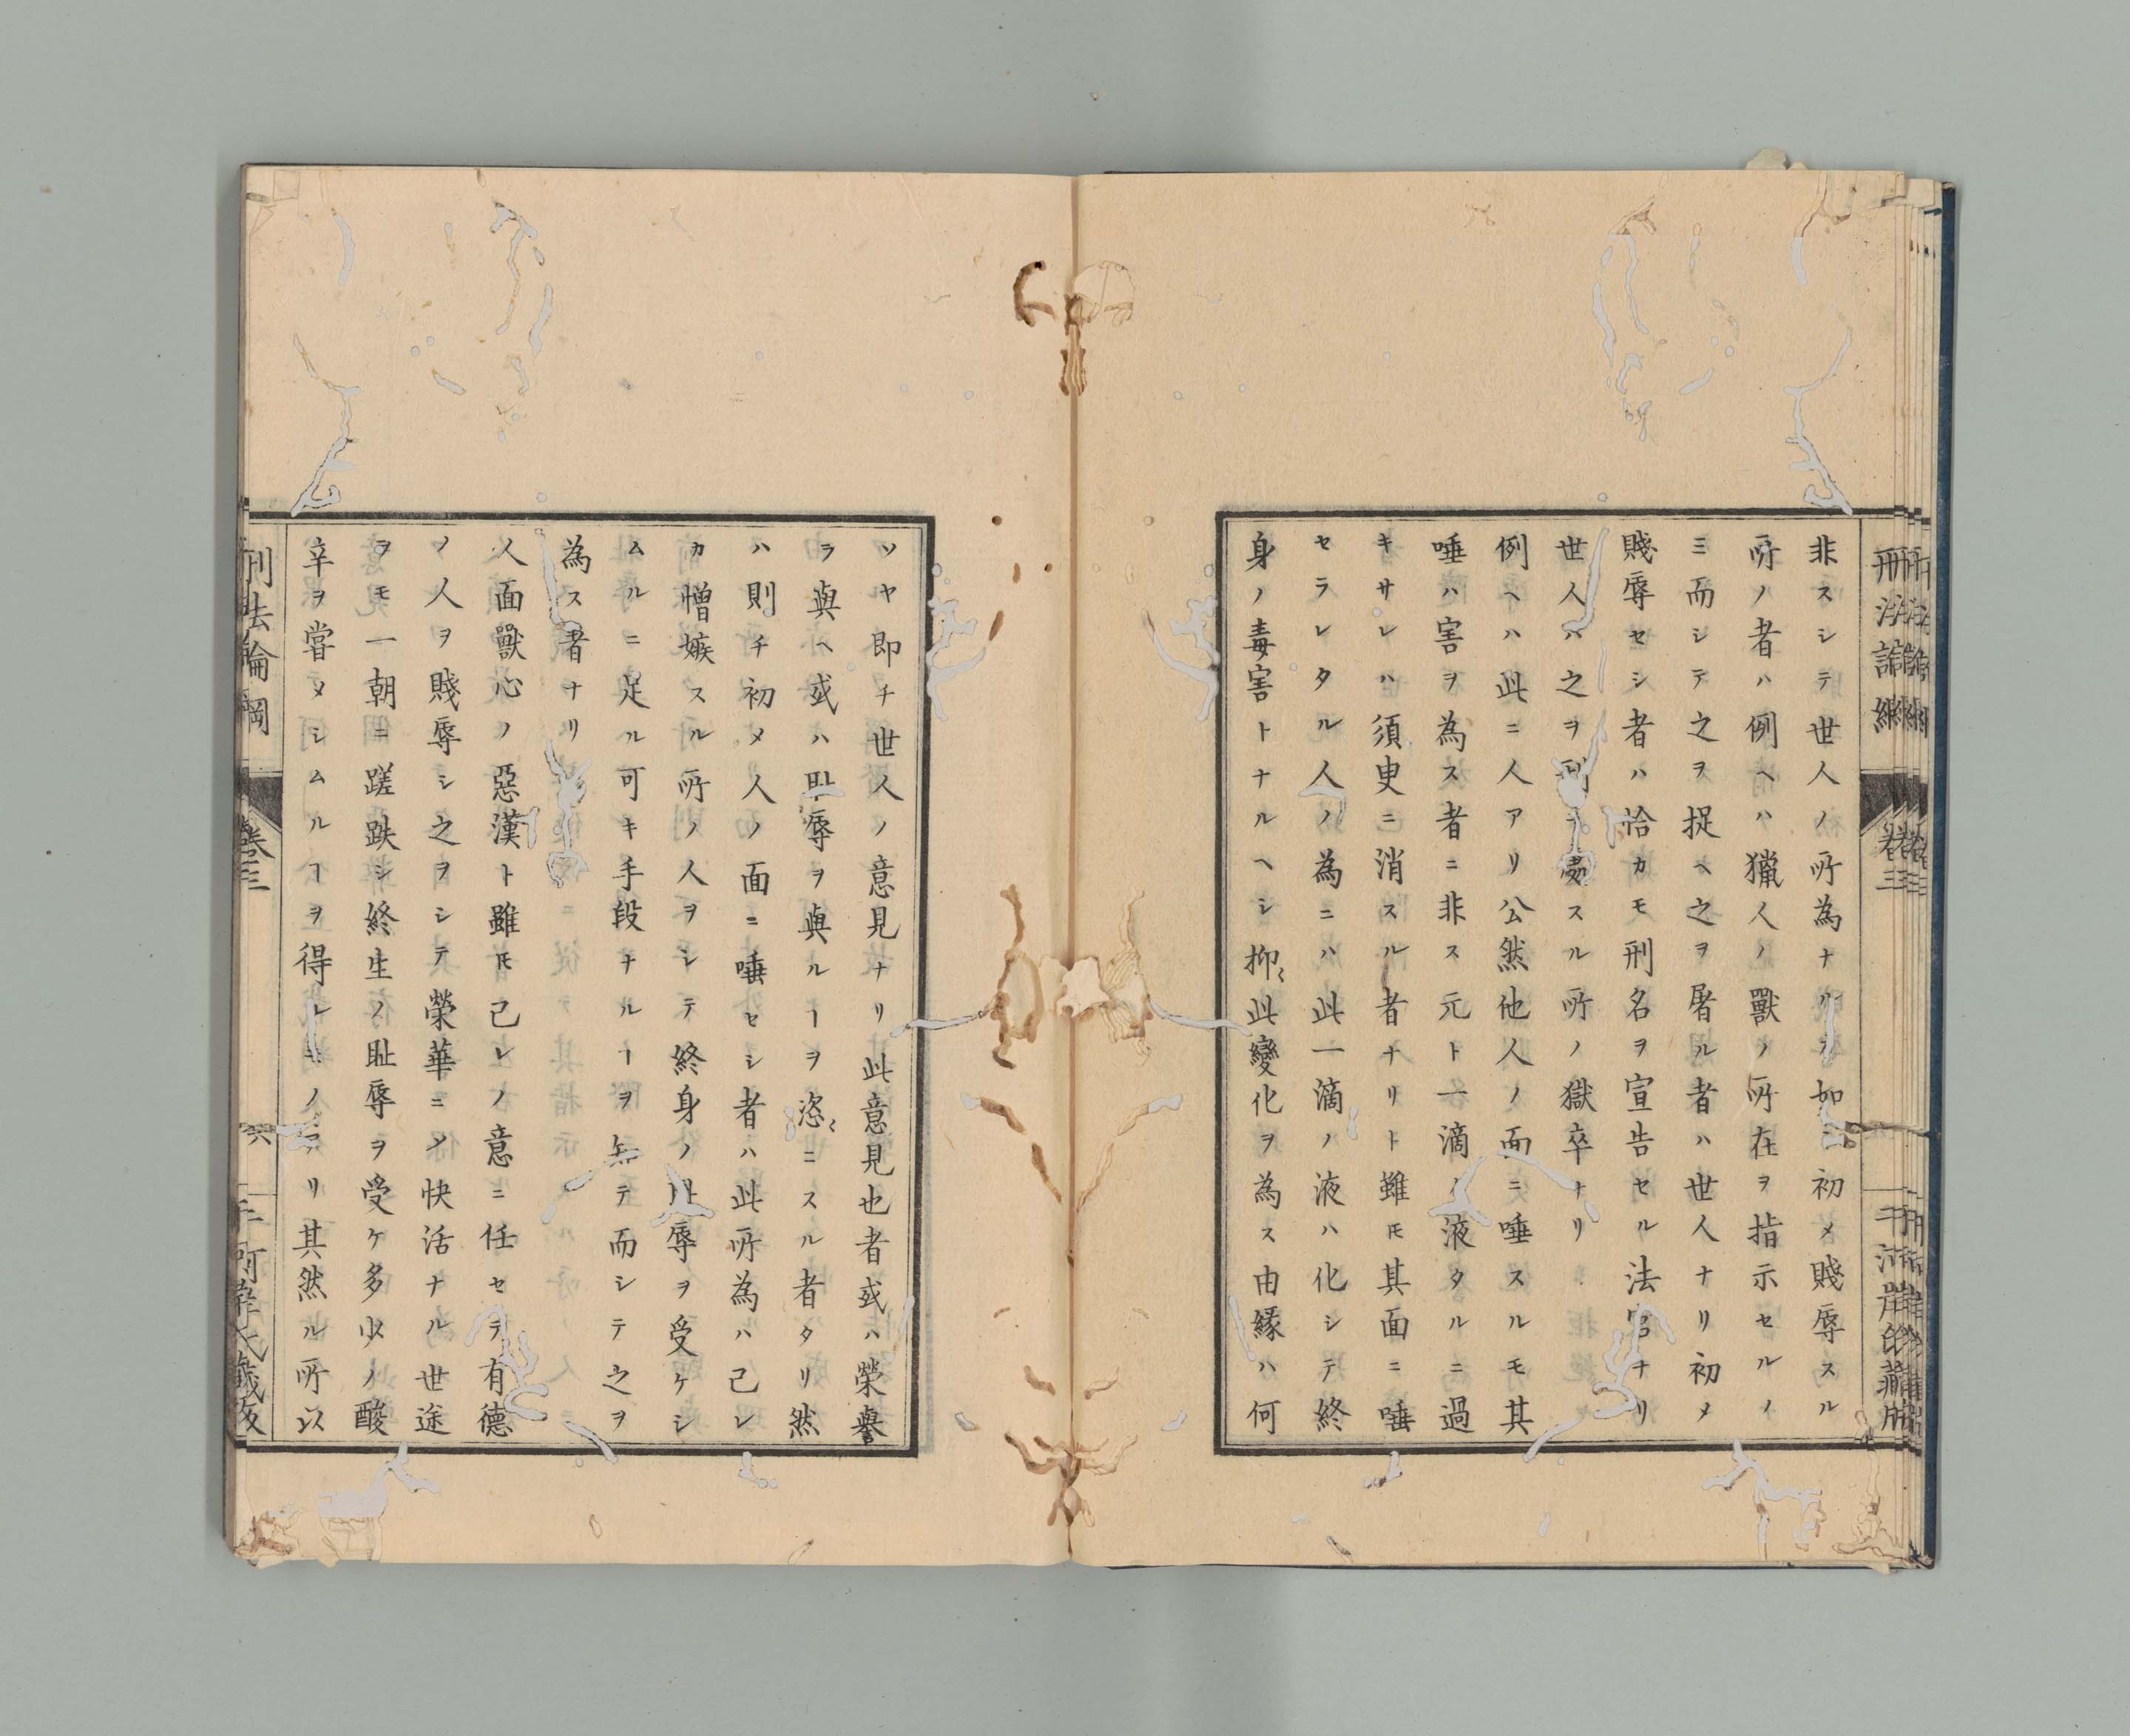 非スシテ世人ノ所為ナリ如シ初メ賤辱スル
所ノ者ハ例ヘハ獵人ノ獸ノ所在ヲ指示セルノ
ミ而シテ之ヲ捉ヘ之ヲ屠ル者ハ世人ナリ初メ
賤辱セシ者ハ恰カモ刑名ヲ宣告セル法官ナリ
世人ハ之ヲ刑ニ處スル所ノ獄卒ナリ
例ヘハ此ニ人アリ公然他人ノ面ニ唾スルモ其
唾ハ害ヲ為ス者ニ非ス元ト一滴ノ液タルニ過
キサレハ須臾ニ消スル者ナリト雖𪜈其面ニ唾
セラレタル人ノ為ニハ此一滴ノ液ハ化シテ終
身ノ毒害トナルヘシ抑〻此變化ヲ為ス由緣ハ何
ソヤ即チ世人ノ意見ナリ此意見也者或ハ榮譽
ヲ與ヘ或ハ耻辱ヲ與ルヿヲ恣〻ニスル者タリ然
ハ則チ初メ人ノ面ニ唾セシ者ハ此所為ハ己レ
カ憎嫉スル所ノ人ヲシテ終身ノ耻辱ヲ受ケシ
ムルニ足ル可キ手段ナルヿヲ知テ而シテ之ヲ
為ス者ナリ
人面獸心ノ惡漢ト雖𪜈己レノ意ニ任セテ有德
ノ人ヲ賤辱シ之ヲシテ榮華ニ乄快活ナル世途
ヲモ一朝ニ蹉跌シ終生ノ耻辱ヲ受ケ多少ノ酸
辛ヲ嘗メシムルヿヲ得ルモノアリ其然ル所以
刑法論綱
卷三
六